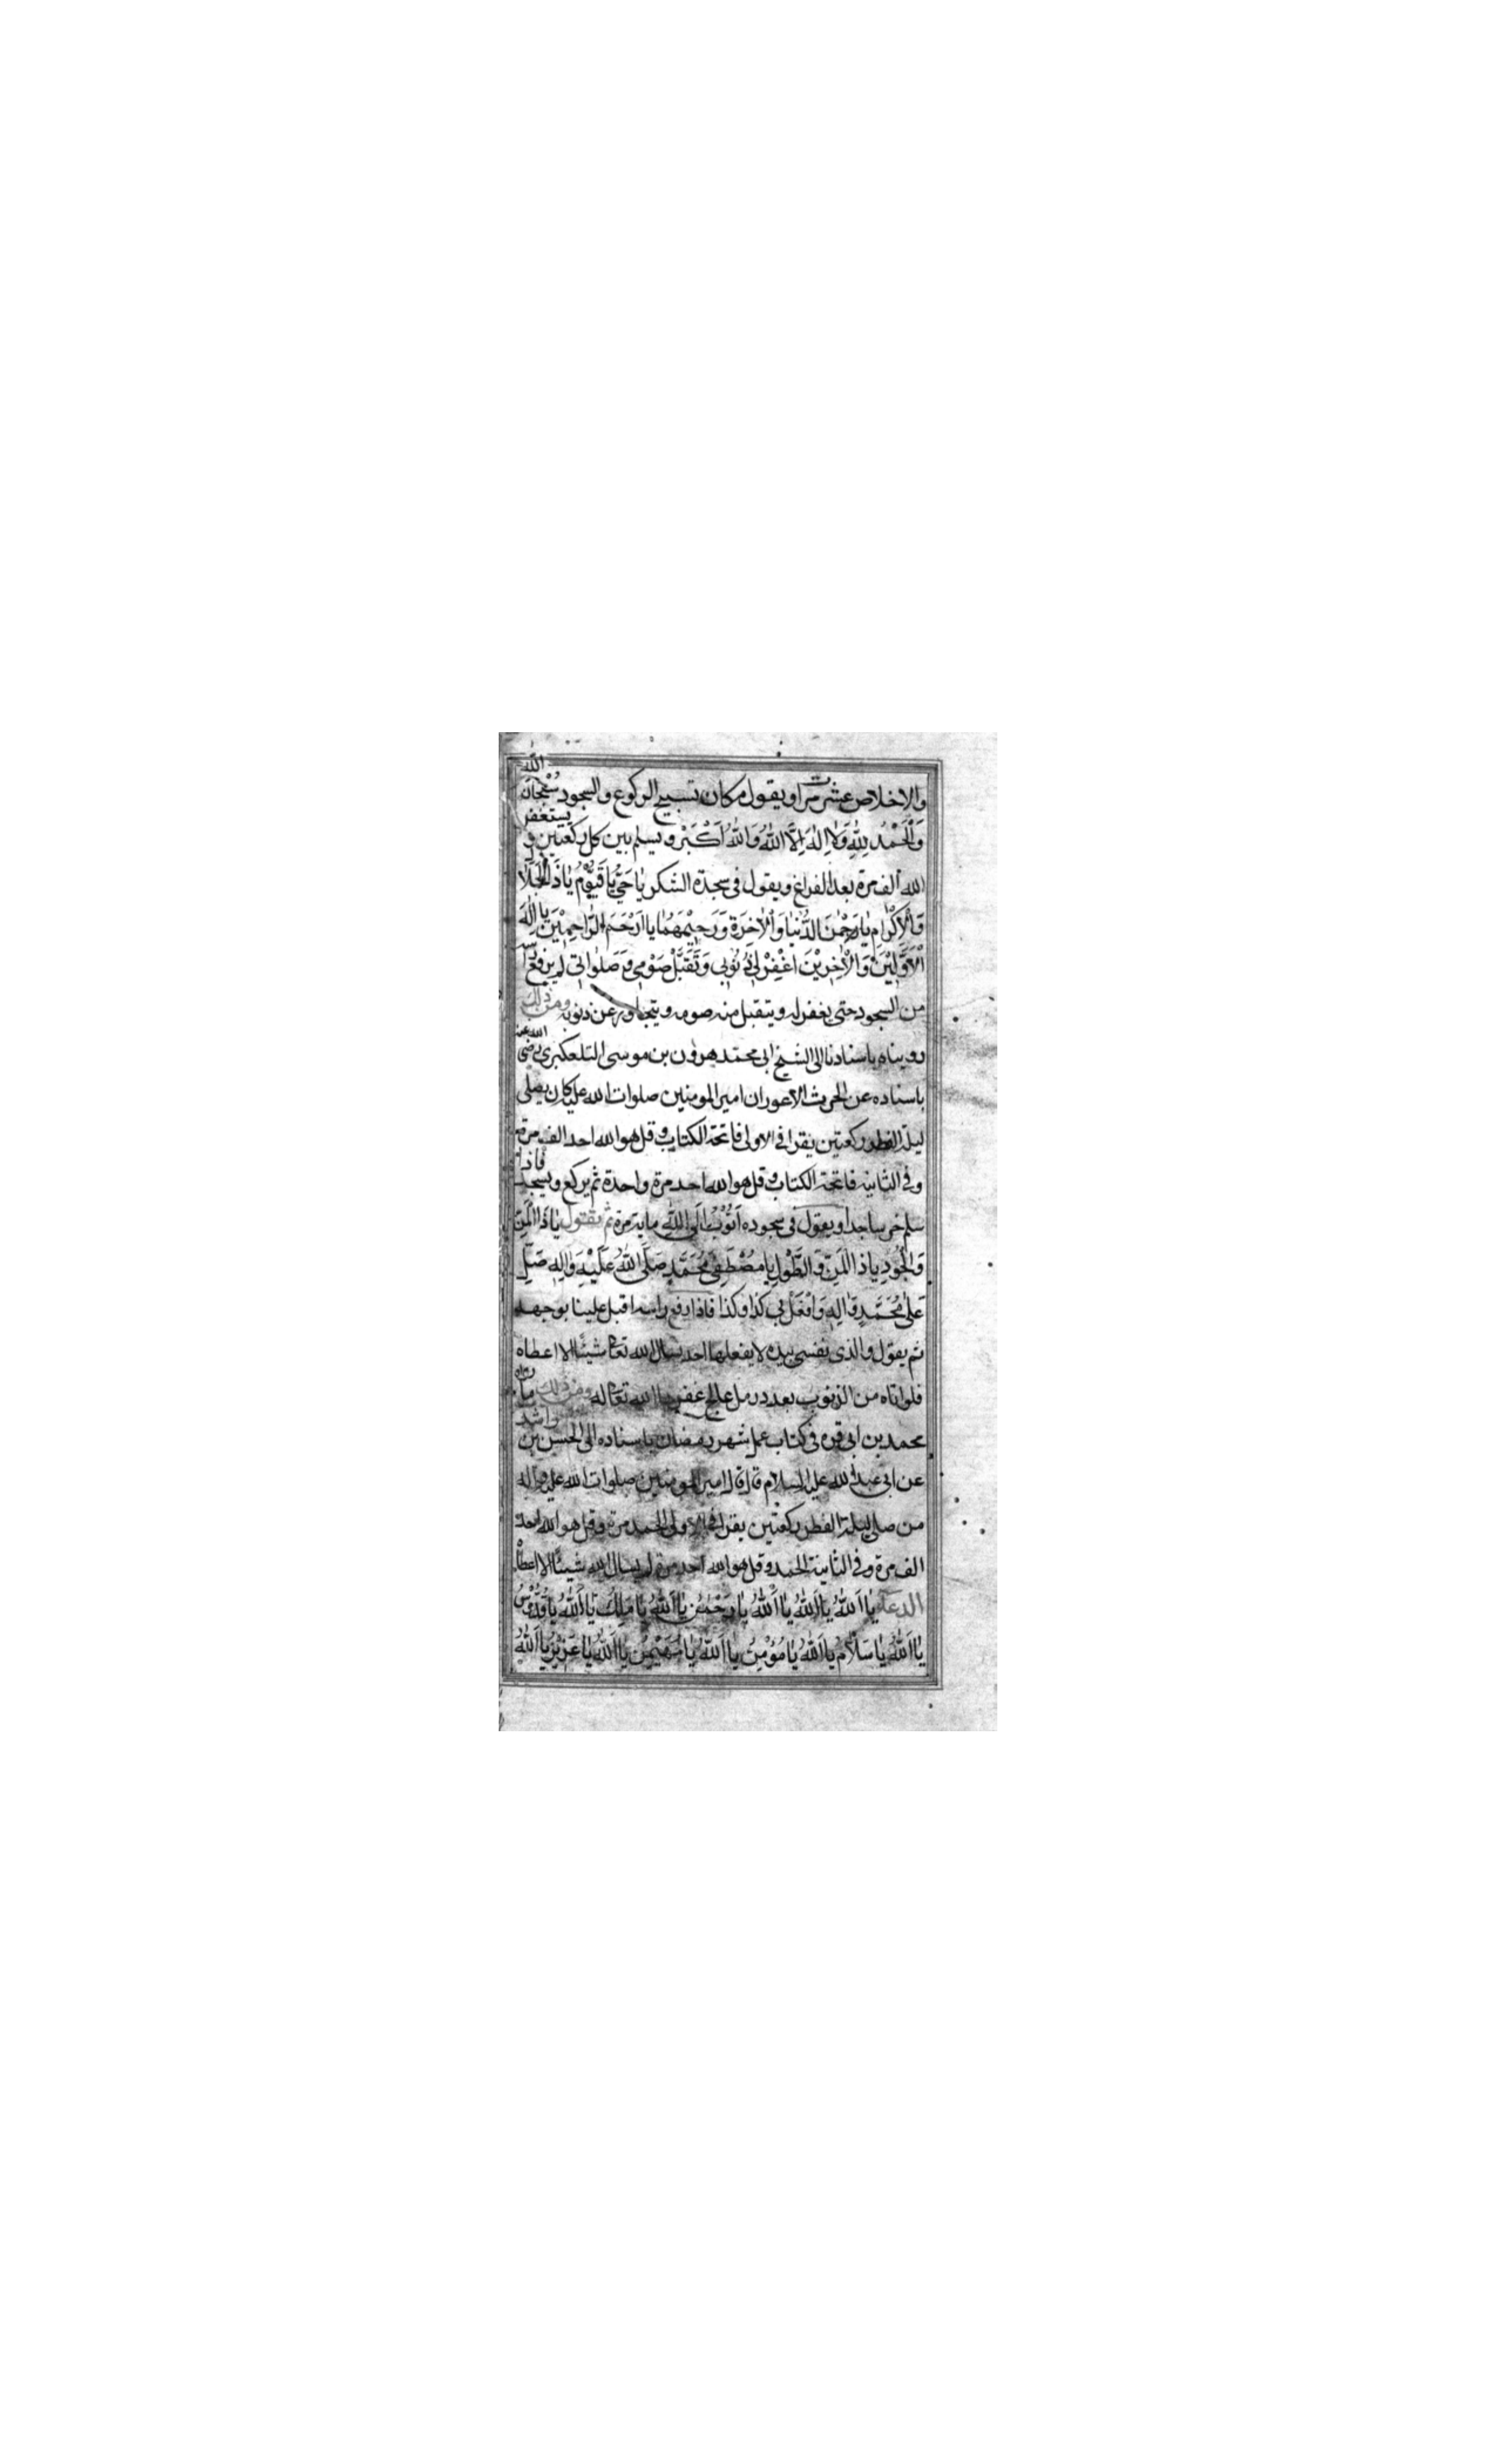 والاخلاص عشر مرات ويقول مكان تسبيح الركوع والسجود سُبْحَانَ اللّٰه
وَالْحَمْدُ لِلّٰهِ وَلَا اِلٰهَ اِلَّا اللّٰهُ وَاللّٰهُ اَكْبَرْ و يسلم بين كل ركعتين و يستغفر
الله الف مرة بعد الفراغ ويقول فى سجدة الشكر يٰا حَيُّ يٰا قَيُّوْمُ يٰا ذَا الْجَلٰا
وَالْاِكْرٰامِ يٰا رَحْمٰنَ الدُّنْيٰا وَالْاٰخِرَةِ وَرَحِيْمَهُمٰا يٰا اَرْحَمَ الرّٰاحِمِيْنَ يٰا اِلٰهَ
الْاَوَّلِيْنَ وَالْاٰخِرِيْنَ اغْفِرْ لِيْ ذُنُوْبِى وَتَقَبَّلْ صَوْمِى وَصَلَوٰاتِى لم يرفع راسه
من السجود حتى يغفر له ويتقبل منه صومه ويتجاوز عن ذنوبه ومن ذلك
رويناه باسنادنا الى الشيخ ابى محمد هرون بن موسى التلعكبرى رضى الله عنه
باسناده عن الحرث الاعور ان امير المومنين صلوات الله عليه كان يصلى
ليلة الفطر ركعتين يقرا فى الاولى فاتحة الكتاب وقل هو الله احد الف مرة
وفى الثانيه فاتحة الكتاب وقل هو الله احد مرة واحدة ثم يركع ويسجد فاذا
سلم خر ساجدا ويقول فى سجوده اَتُوْبُ اِلَى اللّٰهِ ماية مرة ثم يقول يٰا ذَا الْمَنِّ
وَالْجُودِ يٰا ذَا الْمَنِّ وَالطَّوْلِ يٰا مُصْطَفِىَ مُحَمَّدٍ صَلَّى اللّٰهُ عَلَيْهِ وَاٰلِهِ صَلِّ
عَلٰى مُحَمَّدٍ وَاٰلِهِ وَافْعَلْ بِى كذا وكذا فاذا رفع راسه اقبل علينا بوجهه
ثم يقول والذى نفسى بيده لا يفعلها احد يسال الله تعالى شيئًا الا اعطاه
فلو اتاه من الذنوب بعدد رمل عالج غفرها الله تعالى له ومن ذلك ما رواه
محمد بن ابى قره فى كتاب عمل شهر رمضان باسناده الى الحسن بن راشد
عن ابى عبد الله عليه السلام قال قال امير المومنين صلوات الله عليه واله
من صلى ليلة الفطر ركعتين يقرا فى الاولى الحمد مرة وقل هو الله احد
الف مرة وفى الثانية الحمد وقل هو الله احد مرة لم يسال الله شيئًا الا اعطاه
الدعاء يٰا اَللّٰهُ يٰا اَللّٰهُ يٰا اَللّٰهُ يٰا رَحْمٰنُ يٰا اَللّٰهُ يٰا مَلِكُ يٰا اَللّٰهُ يٰا قُدُّوْسُ
يٰا اَللّٰهُ يٰا سَلٰامُ يٰا اَللّٰهُ يٰا مُؤْمِنُ يٰا اَللّٰهُ يٰا مُهَيْمِنُ يٰا اَللّٰهُ يٰا عَزِيْزُ يٰا اَللّٰهُ